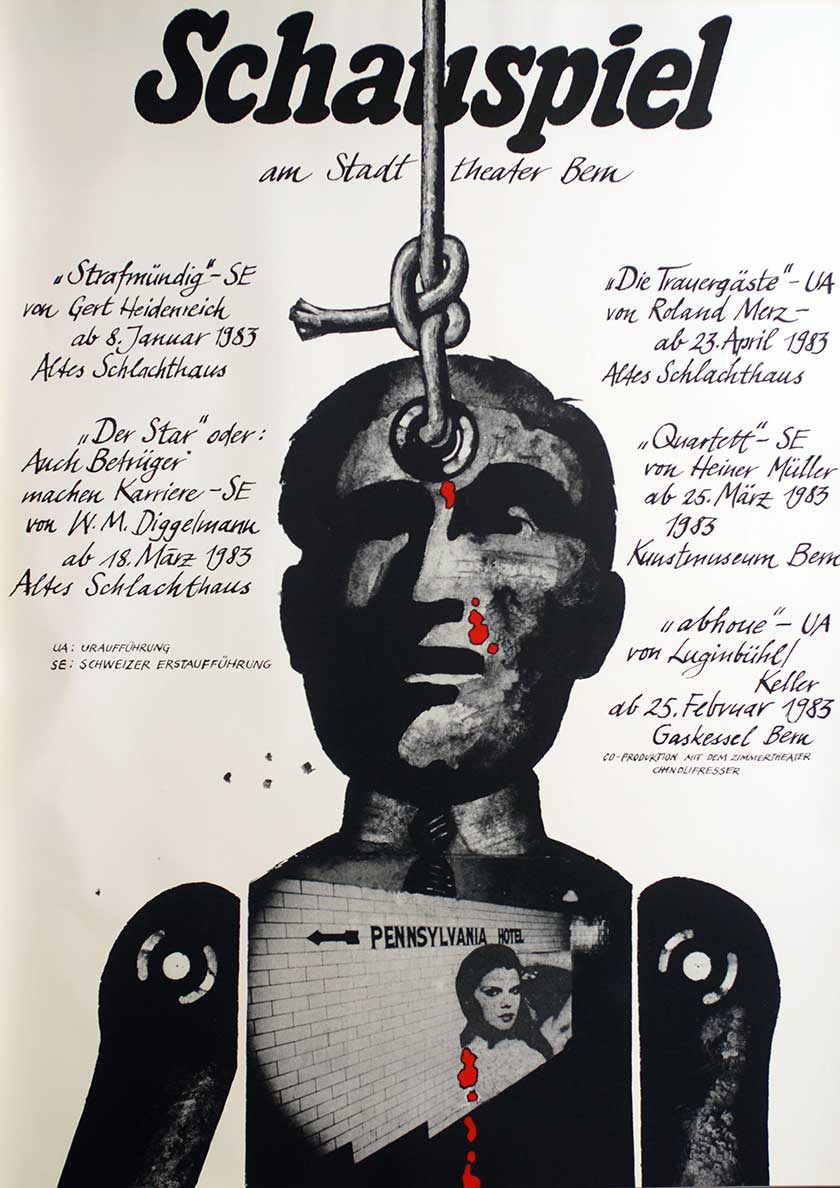 Schauspiel
am Stadttheater Bern
„Strafmündig“-SE
von Gert Heidenreich
ab 8. Januar 1983
Altes Schlachthaus
„Der Star“ oder:
Auch Betrüger
machen Karriere-SE
von W. M. Diggelmann
ab 18. März 1983
Altes Schlachthaus
UA: URAUFFÜHRUNG
SE: SCHWEIZER ERSTAUFFÜHRUNG
„Die Trauergäste“-UA
von Roland Merz-
ab 23. April 1983
Altes Schlachthaus
„Quartett“-SE
von Heiner Müller
ab 25. März 1983
1983
Kunstmuseum Bern
„abhoue“-UA
von Luginbühl/
Keller
ab 25. Februar 1983
Gaskessel Bern
CO-PRODUKTION MIT DEM ZIMMERTHEATER
CHINDLIFRESSER
PENNSYLVANIA HOTEL